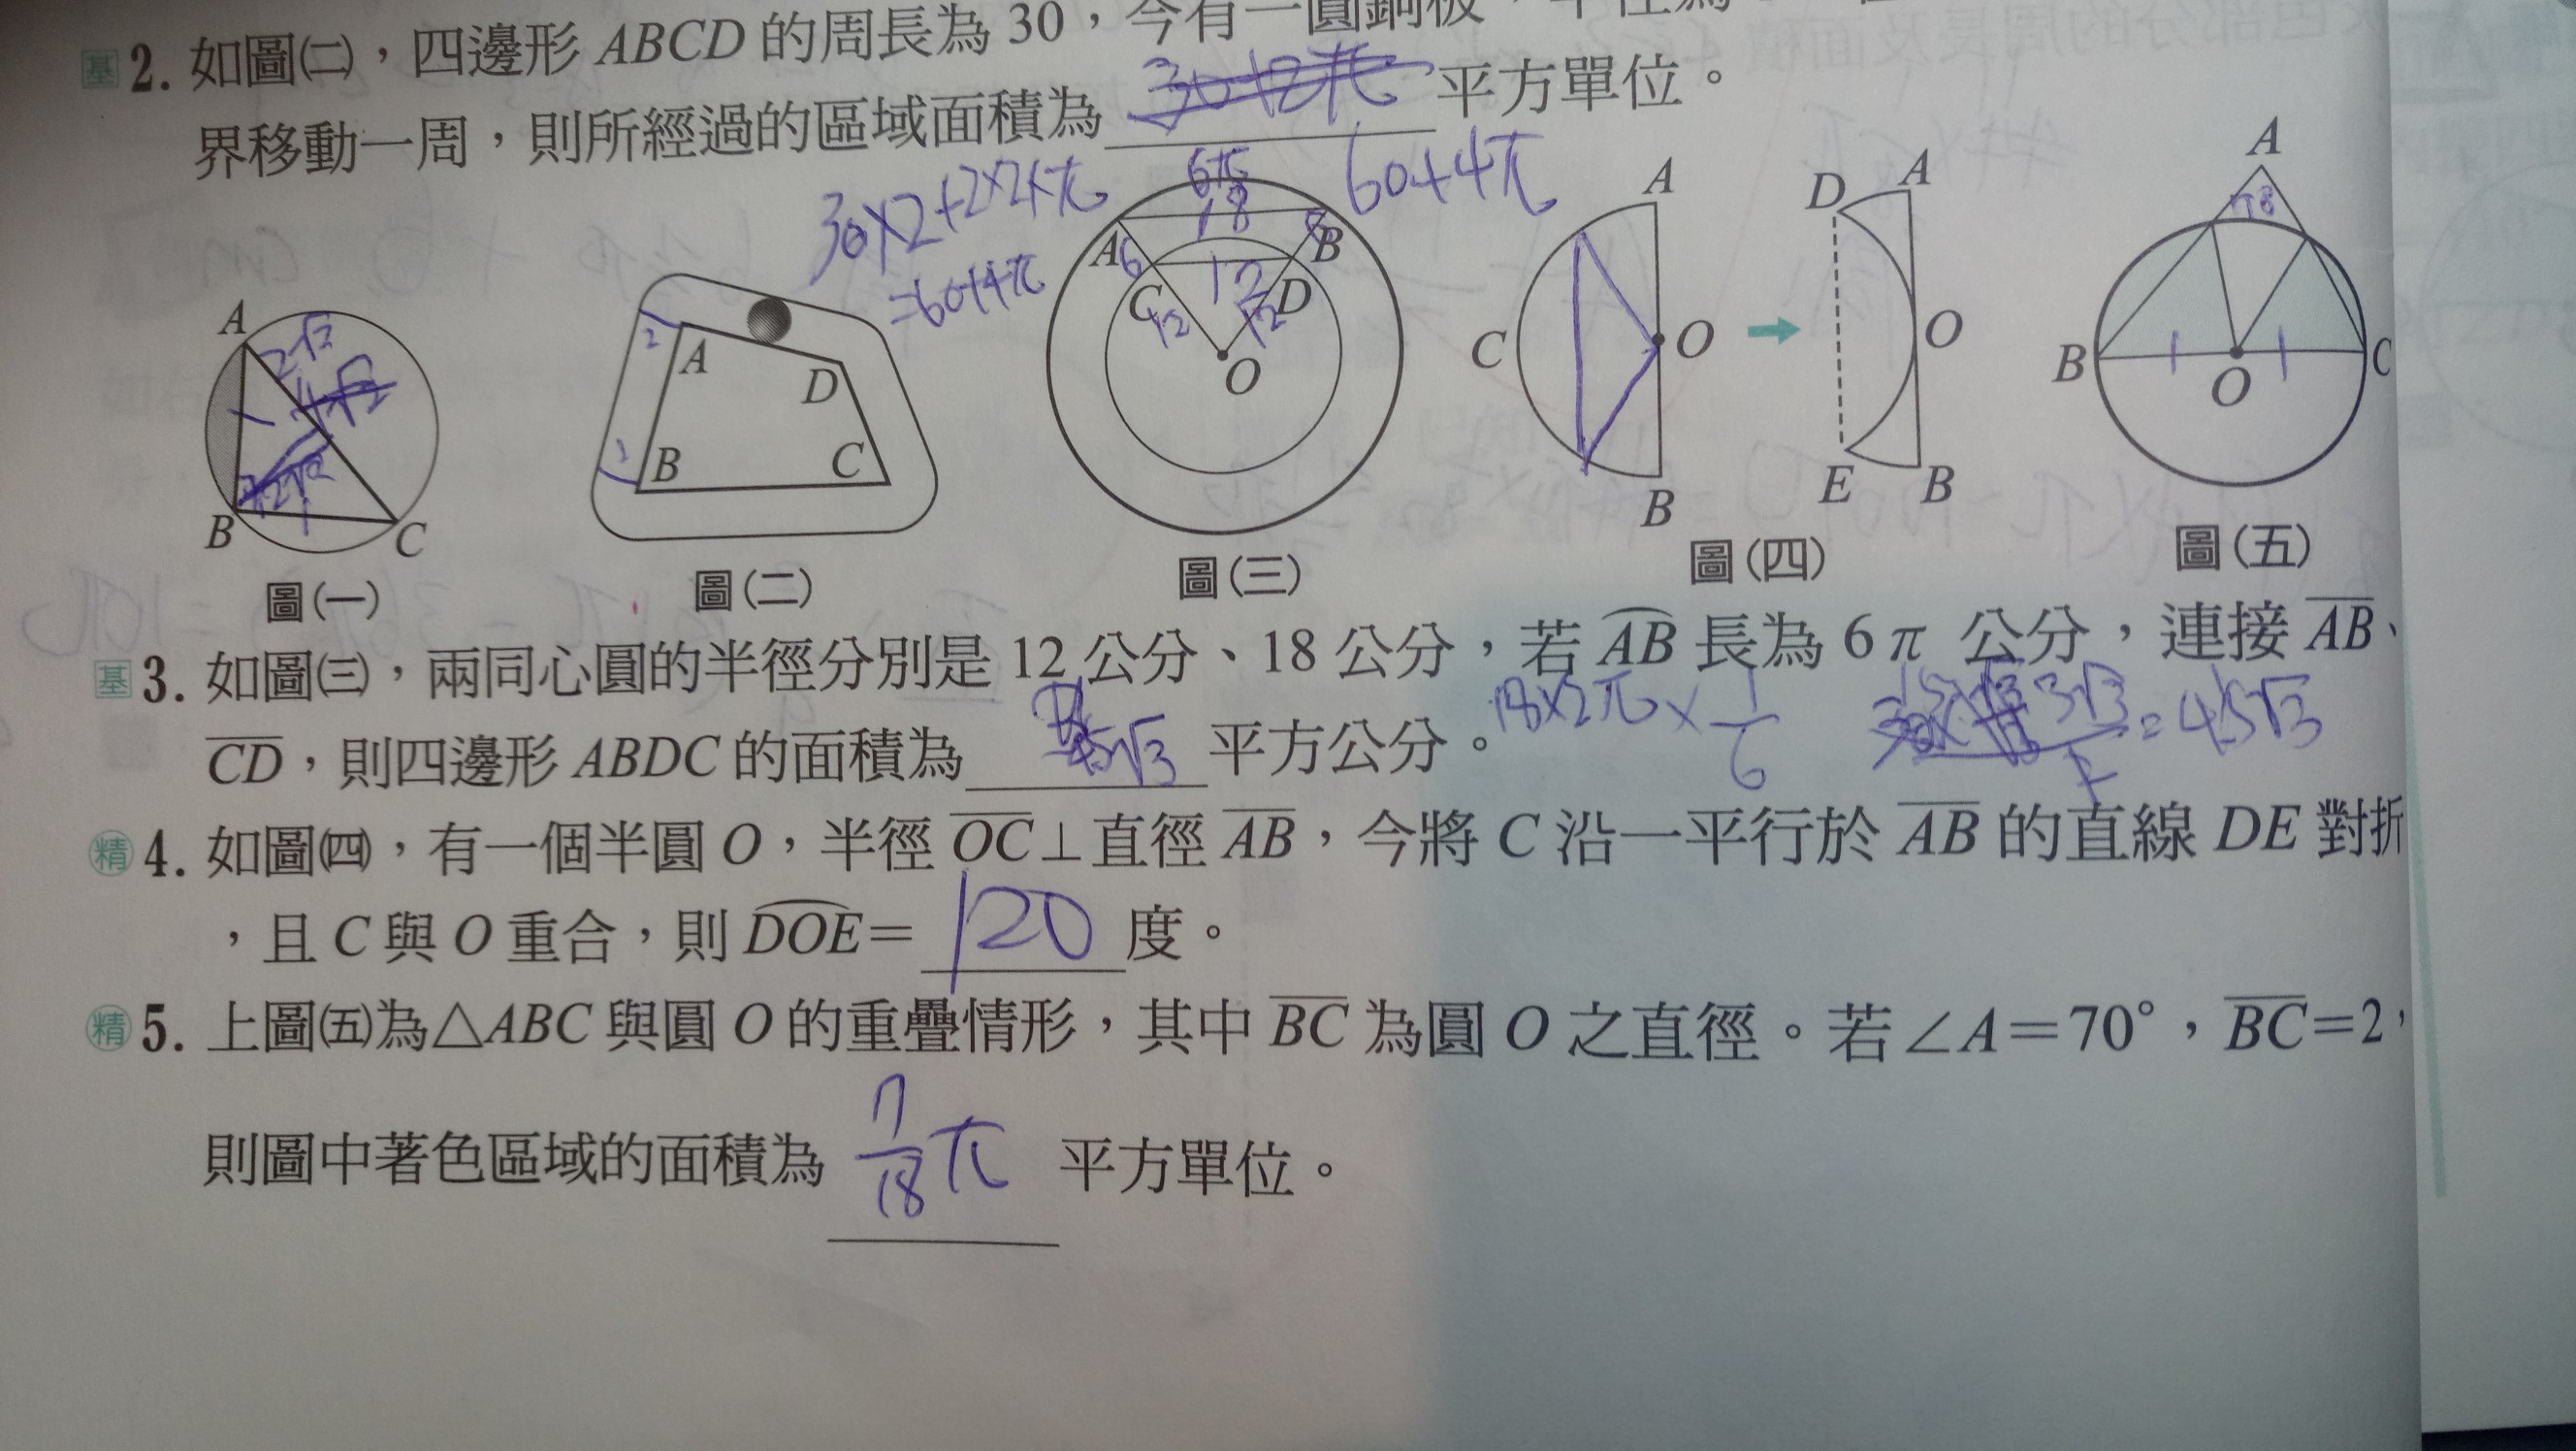 基 2. 如圖㈡，四邊形 ABCD 的周長為 30，今有一圓銅板，半徑為
界移動一周，則所經過的區域面積為 30+2π 平方單位。
60+4π
30×2+2×2×π
=60+4π
A
2√2
4√2
B
C
圖(一)
2
A
D
1
B
C
圖(二)
6π
18
A
6
B
C
12
D
12
12
O
圖(三)
A
C
O
B
D
A
O
E
B
圖(四)
A
70
B
O
C
圖(五)
基 3. 如圖㈢，兩同心圓的半徑分別是 12 公分、18 公分，若 AB 長為 6π 公分，連接 AB、
18×2π×1/6
3√3
2
=45√3
CD，則四邊形 ABDC 的面積為 45√3 平方公分。
精 4. 如圖㈣，有一個半圓 O，半徑 OC⊥直徑 AB，今將 C 沿一平行於 AB 的直線 DE 對折
，且 C 與 O 重合，則 DOE= 120 度。
精 5. 上圖㈤為△ABC 與圓 O 的重疊情形，其中 BC 為圓 O 之直徑。若∠A=70°，BC=2，
則圖中著色區域的面積為 7/18 π 平方單位。